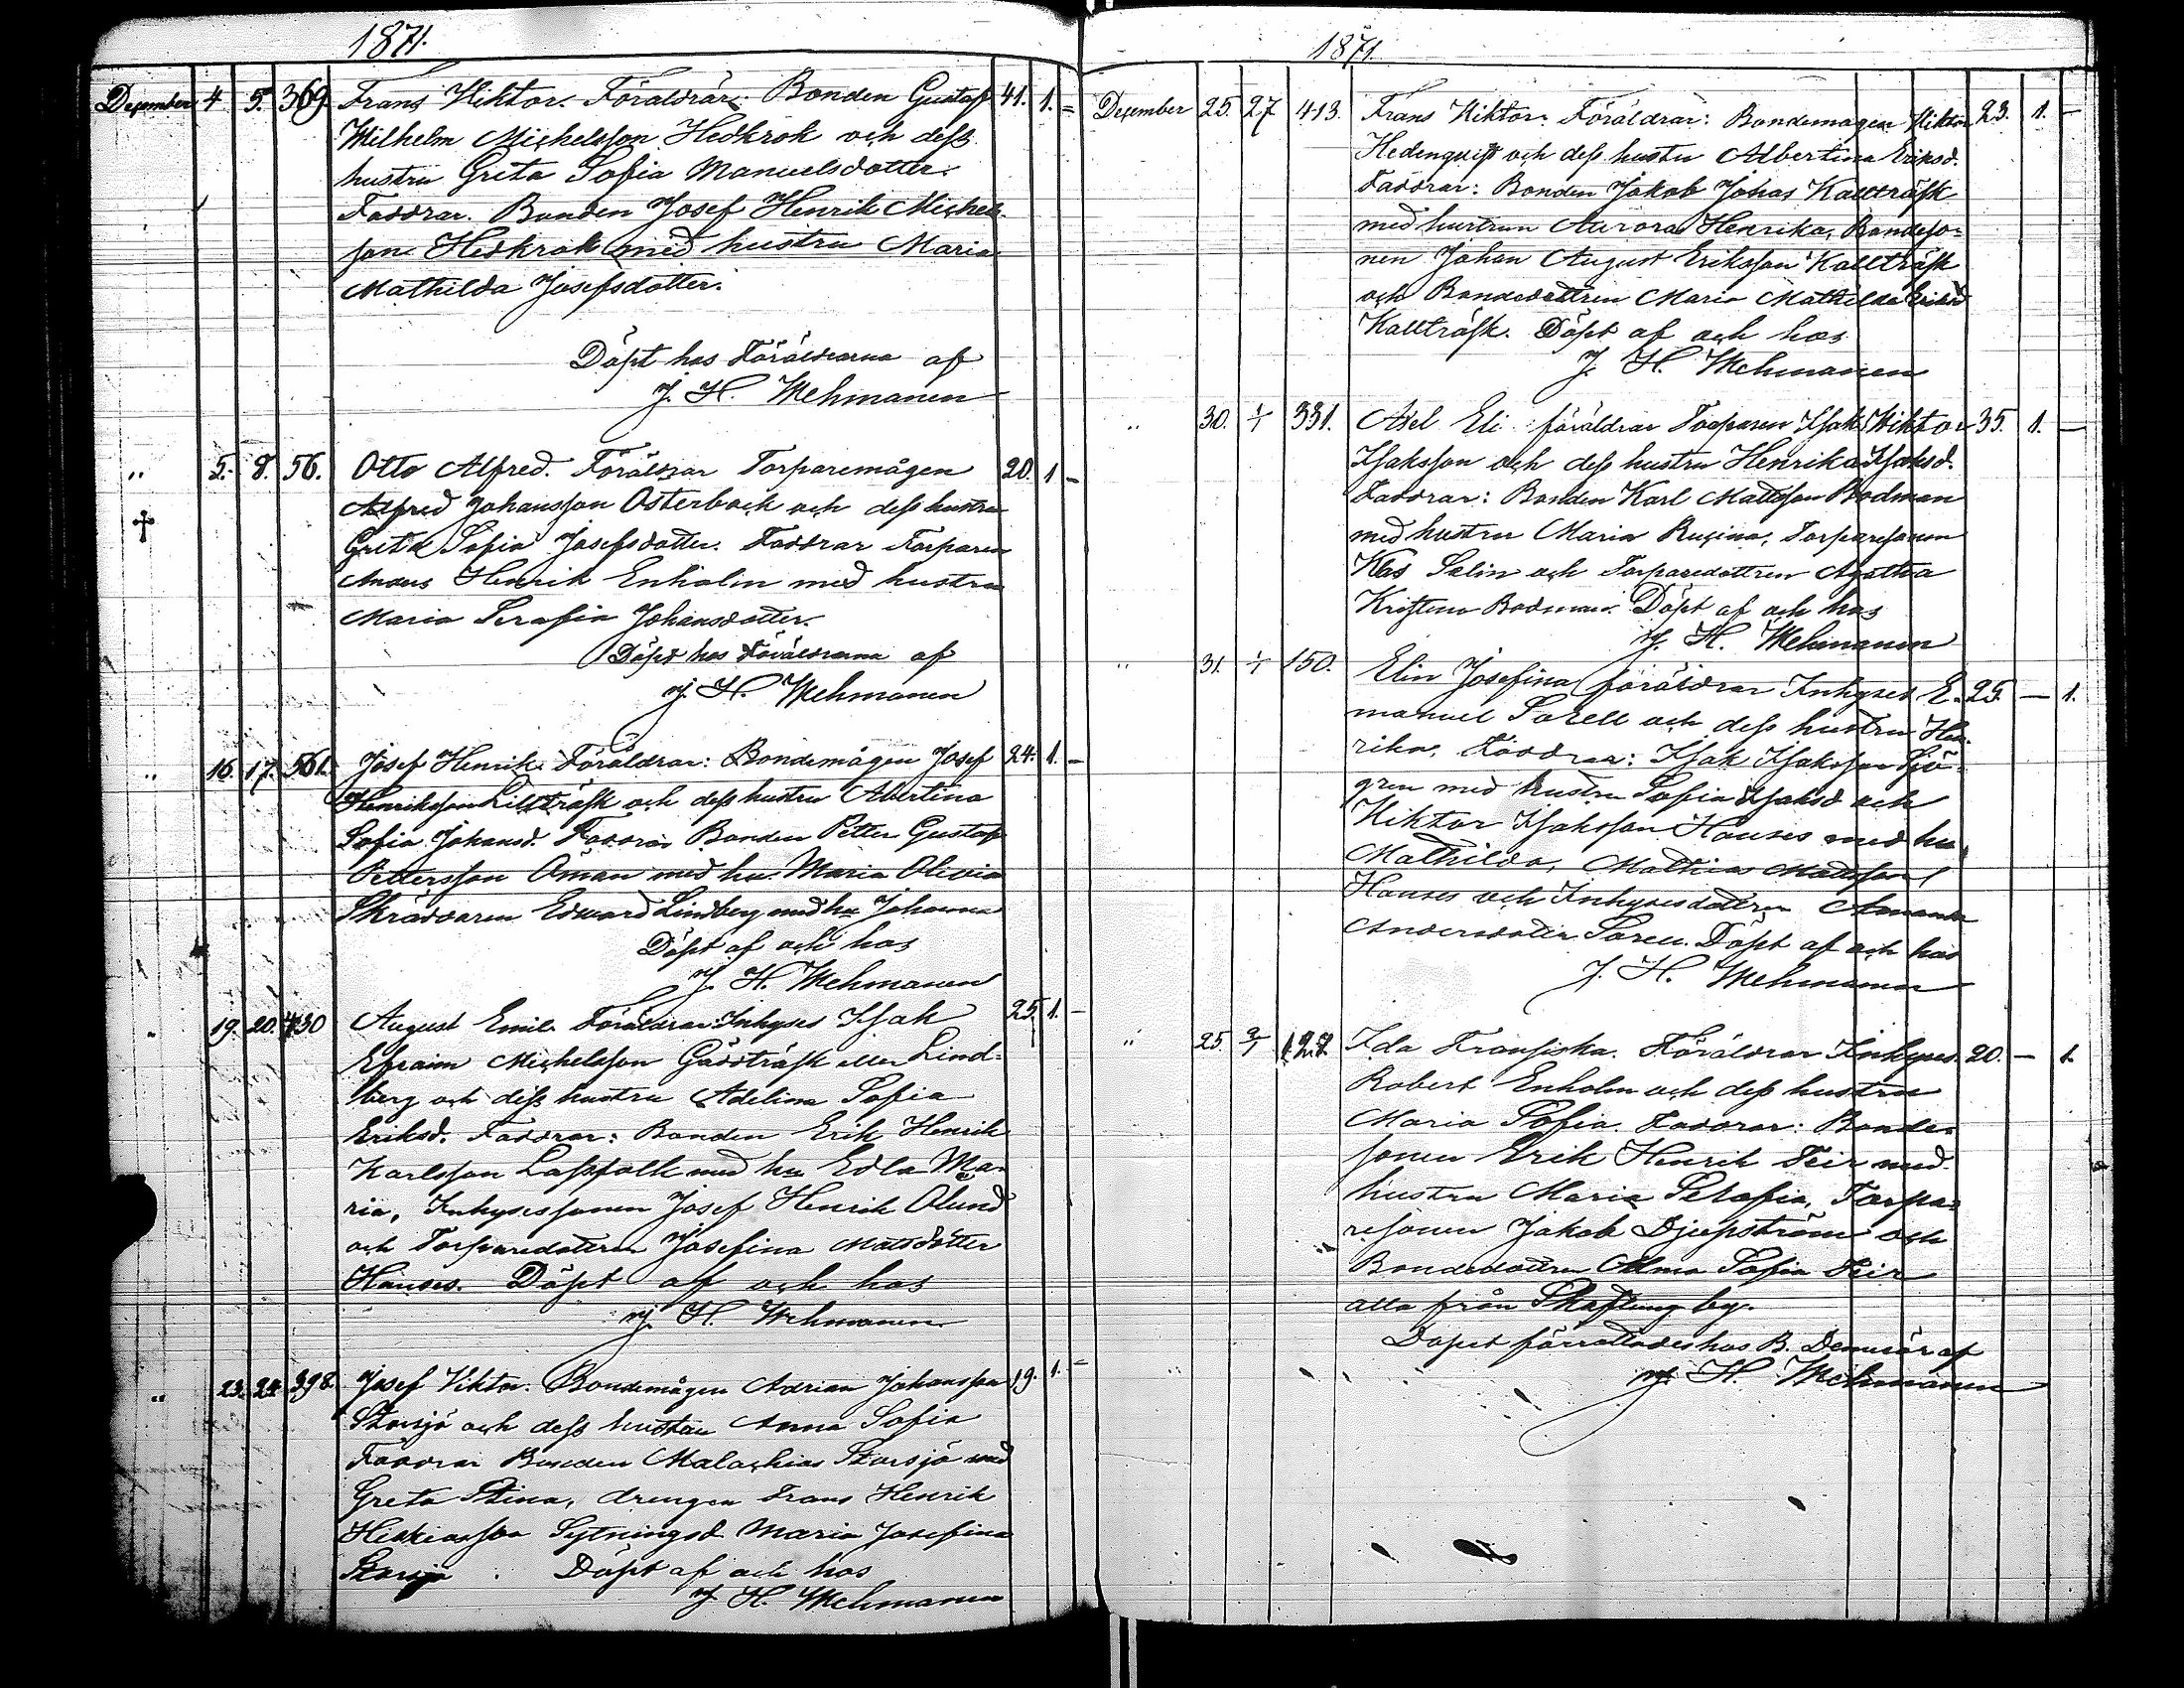 1871.
December 4 5. 369 Frans Wiktor. Föräldrar: Bonden Gustaf 41. 1. -
Wilhelm Michelsson Hedkrok och dess
hustru Greta Sofia Manuelsdotter.
Faddrar. Bonden Josef Henrik Michels-
son Hedkrok med hustru Maria
Mathilda Josefsdotter.
Döpt hos Föräldrarna af
J. H. Wehmanen
" 5. 8. 56. Otto Alfred. Föräldrar Torparemågen 20. 1 -
Alfred Johansson Österback och dess hustru
Greta Sofia Josefsdotter. Faddrar Torparen
Anders Henrik Enholm med hustru
Maria Serafia Johansdotter.
Döpt hos Föräldrarna af
J. H. Wehmanen
" 16. 17. 561. Josef Henrik. Föräldrar: Bondemågen Josef 24. 1. -
Henriksson Lillträsk och dess hustru Albertina
Sofia Johansd. Faddrar Bonden Petter Gustaf
Pettersson Öman med hu. Maria Olivia
Skräddaren Edward Lindberg med hu Johanna
Döpt af och hos
J. H. Wehmanen
" 19. 20. 430 August Emil. Föräldrar: Inhyses Isak 25. 1. -
Efraim Michelsson Gäddträsk eller Lind-
berg och dess hustru Adelina Sofia
Eriksd. Faddrar: Bonden Erik Henrik
Karlsson Lassfolk med hu Edla Ma-
ria, Inhysessonen Josef Henrik Ölund
och Torparedottern Josefina Matsdotter
Hanses. Döpt af och hos
J. H. Wehmanen
" 23. 24. 398. Josef Viktor. Bondemågen Adrian Johansson 19. 1. -
Storsjö och dess hustru Anna Sofia
Faddrar Bonden Malachias Storsjö med
Greta Stina, drengen Frans Henrik
Hiskiasson Sytningsd. Maria Josefina
Storsjö. Döpt af och hos
J. H. Wehmanen
1871.
December 25. 27 413. Frans Wiktor. Föräldrar: Bondemågen Viktor 23. 1. -
Hedenqvist och dess hustru Albertina Eriksd.
Faddrar: Bonden Jakob Johas Kallträsk
med hustrun Aurora Henrika, Bondeso-
nen Johan August Eriksson Kallträsk
och Bondedottren Maria Mathilda Eriksd
Kallträsk. Döpt af och hos
J. H. Wehmanen
" 30. 1/1 331. Axel Eli föräldrar Torparen Isak Wiktor 35. 1. -
Isaksson och dess hustru Henrika Isaksd.
Faddrar: Bonden Karl Mattsson Bodman
med hustru Maria Rucina, Torparesonen
Klas Selin och Torparedottren Agatha
Kristina Bodman. Döpt af och hos
J. H. Wehmanen
" 31. 1/1 150. Elin Josefina föräldrar Inhyses E- 25. - 1.
manuel Sarell och dess hustru Hen-
rika. Faddrar: Isak Isaksson Sjö-
gren med hustru Sofia Isaksd och
Wiktor Isaksson Hanses med hu
Mathilda, Mathias Mattsson
Hanses och Inhysesdottren Amanda
Andersdotter Sarell. Döpt af och hos
J. H. Wehmanen
" 25. 2/1 122 Ida Fransiska. Föräldrar Inhyses 20. - 1.
Robert Enholm och dess hustru
Maria Sofia. Faddrar: Bonde-
sonen Erik Henrik Teir med
hustru Maria Serafia, Torpa-
resonen Jakob Djupström och
Bondedottren Alma Sofia Teir
alla från Skaftung by.
Dopet förrättades hos B. af
J. H. Wehmanen